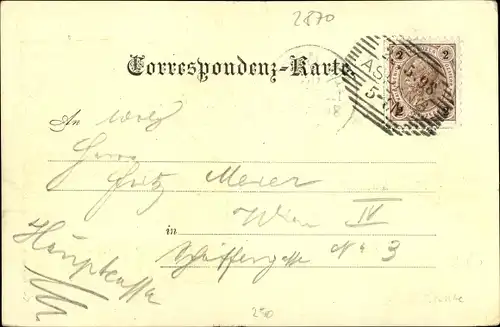 2870
Correspondenz-Karte.
2 2
AS 5 98
An
Herrn
Fritz Meier
Wien IV
in
Schäffergasse No 3
Hauptkassa
250